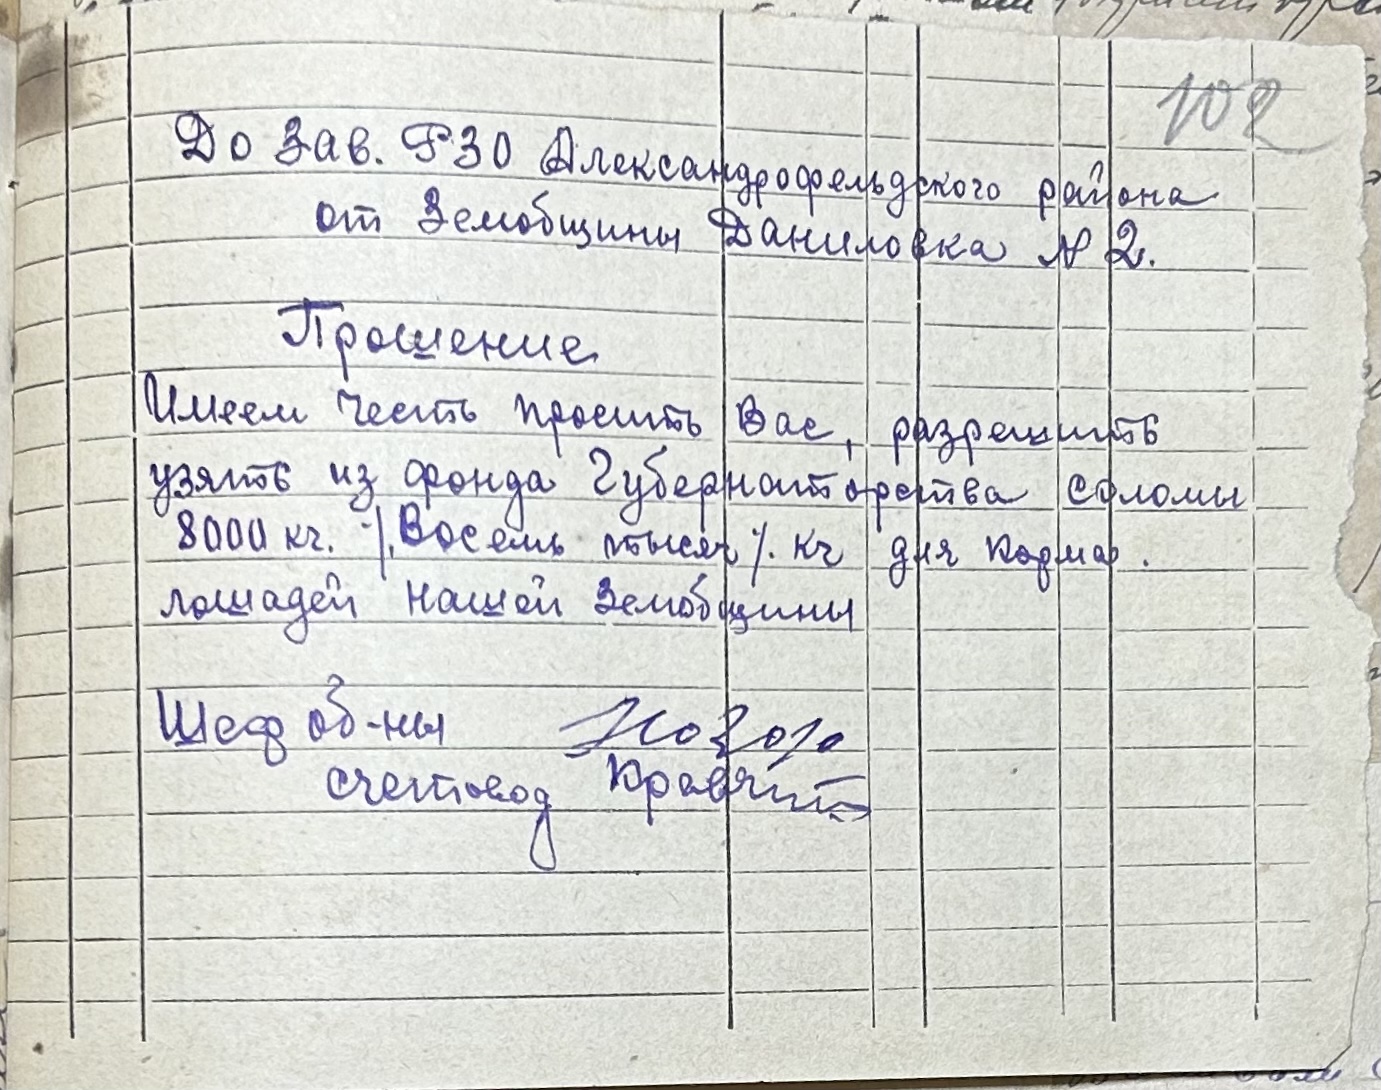 102
До Зав. РЗО Александрофельдского района
от Земобщины Даниловка N 2.
Прошение
Имеем честь просить Вас, разрешить
узять из фонда Губернаторства соломы
8000 кг. /.Восемь тысяч/. кг для корма.
лошадей нашей Земобщины
Шеф об-ны
счетовод